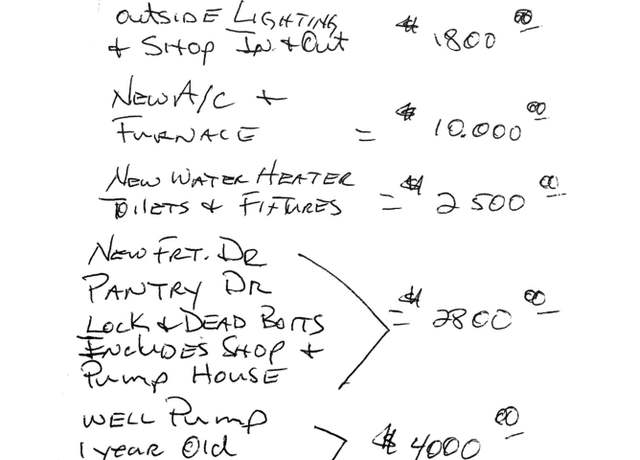 OUTSIDE LIGHTING
& SHOP IN & OUT $ 1800 00
NEW A/C +
FURNACE = $ 10.000 00
NEW WATER HEATER
TOILETS & FIXTURES = $ 2500 00
NEW FRT. DR
PANTRY DR
LOCK & DEAD BOLTS = $ 2800 00
INCLUDES SHOP +
PUMP HOUSE
WELL PUMP
1 YEAR OLD $ 4000 00